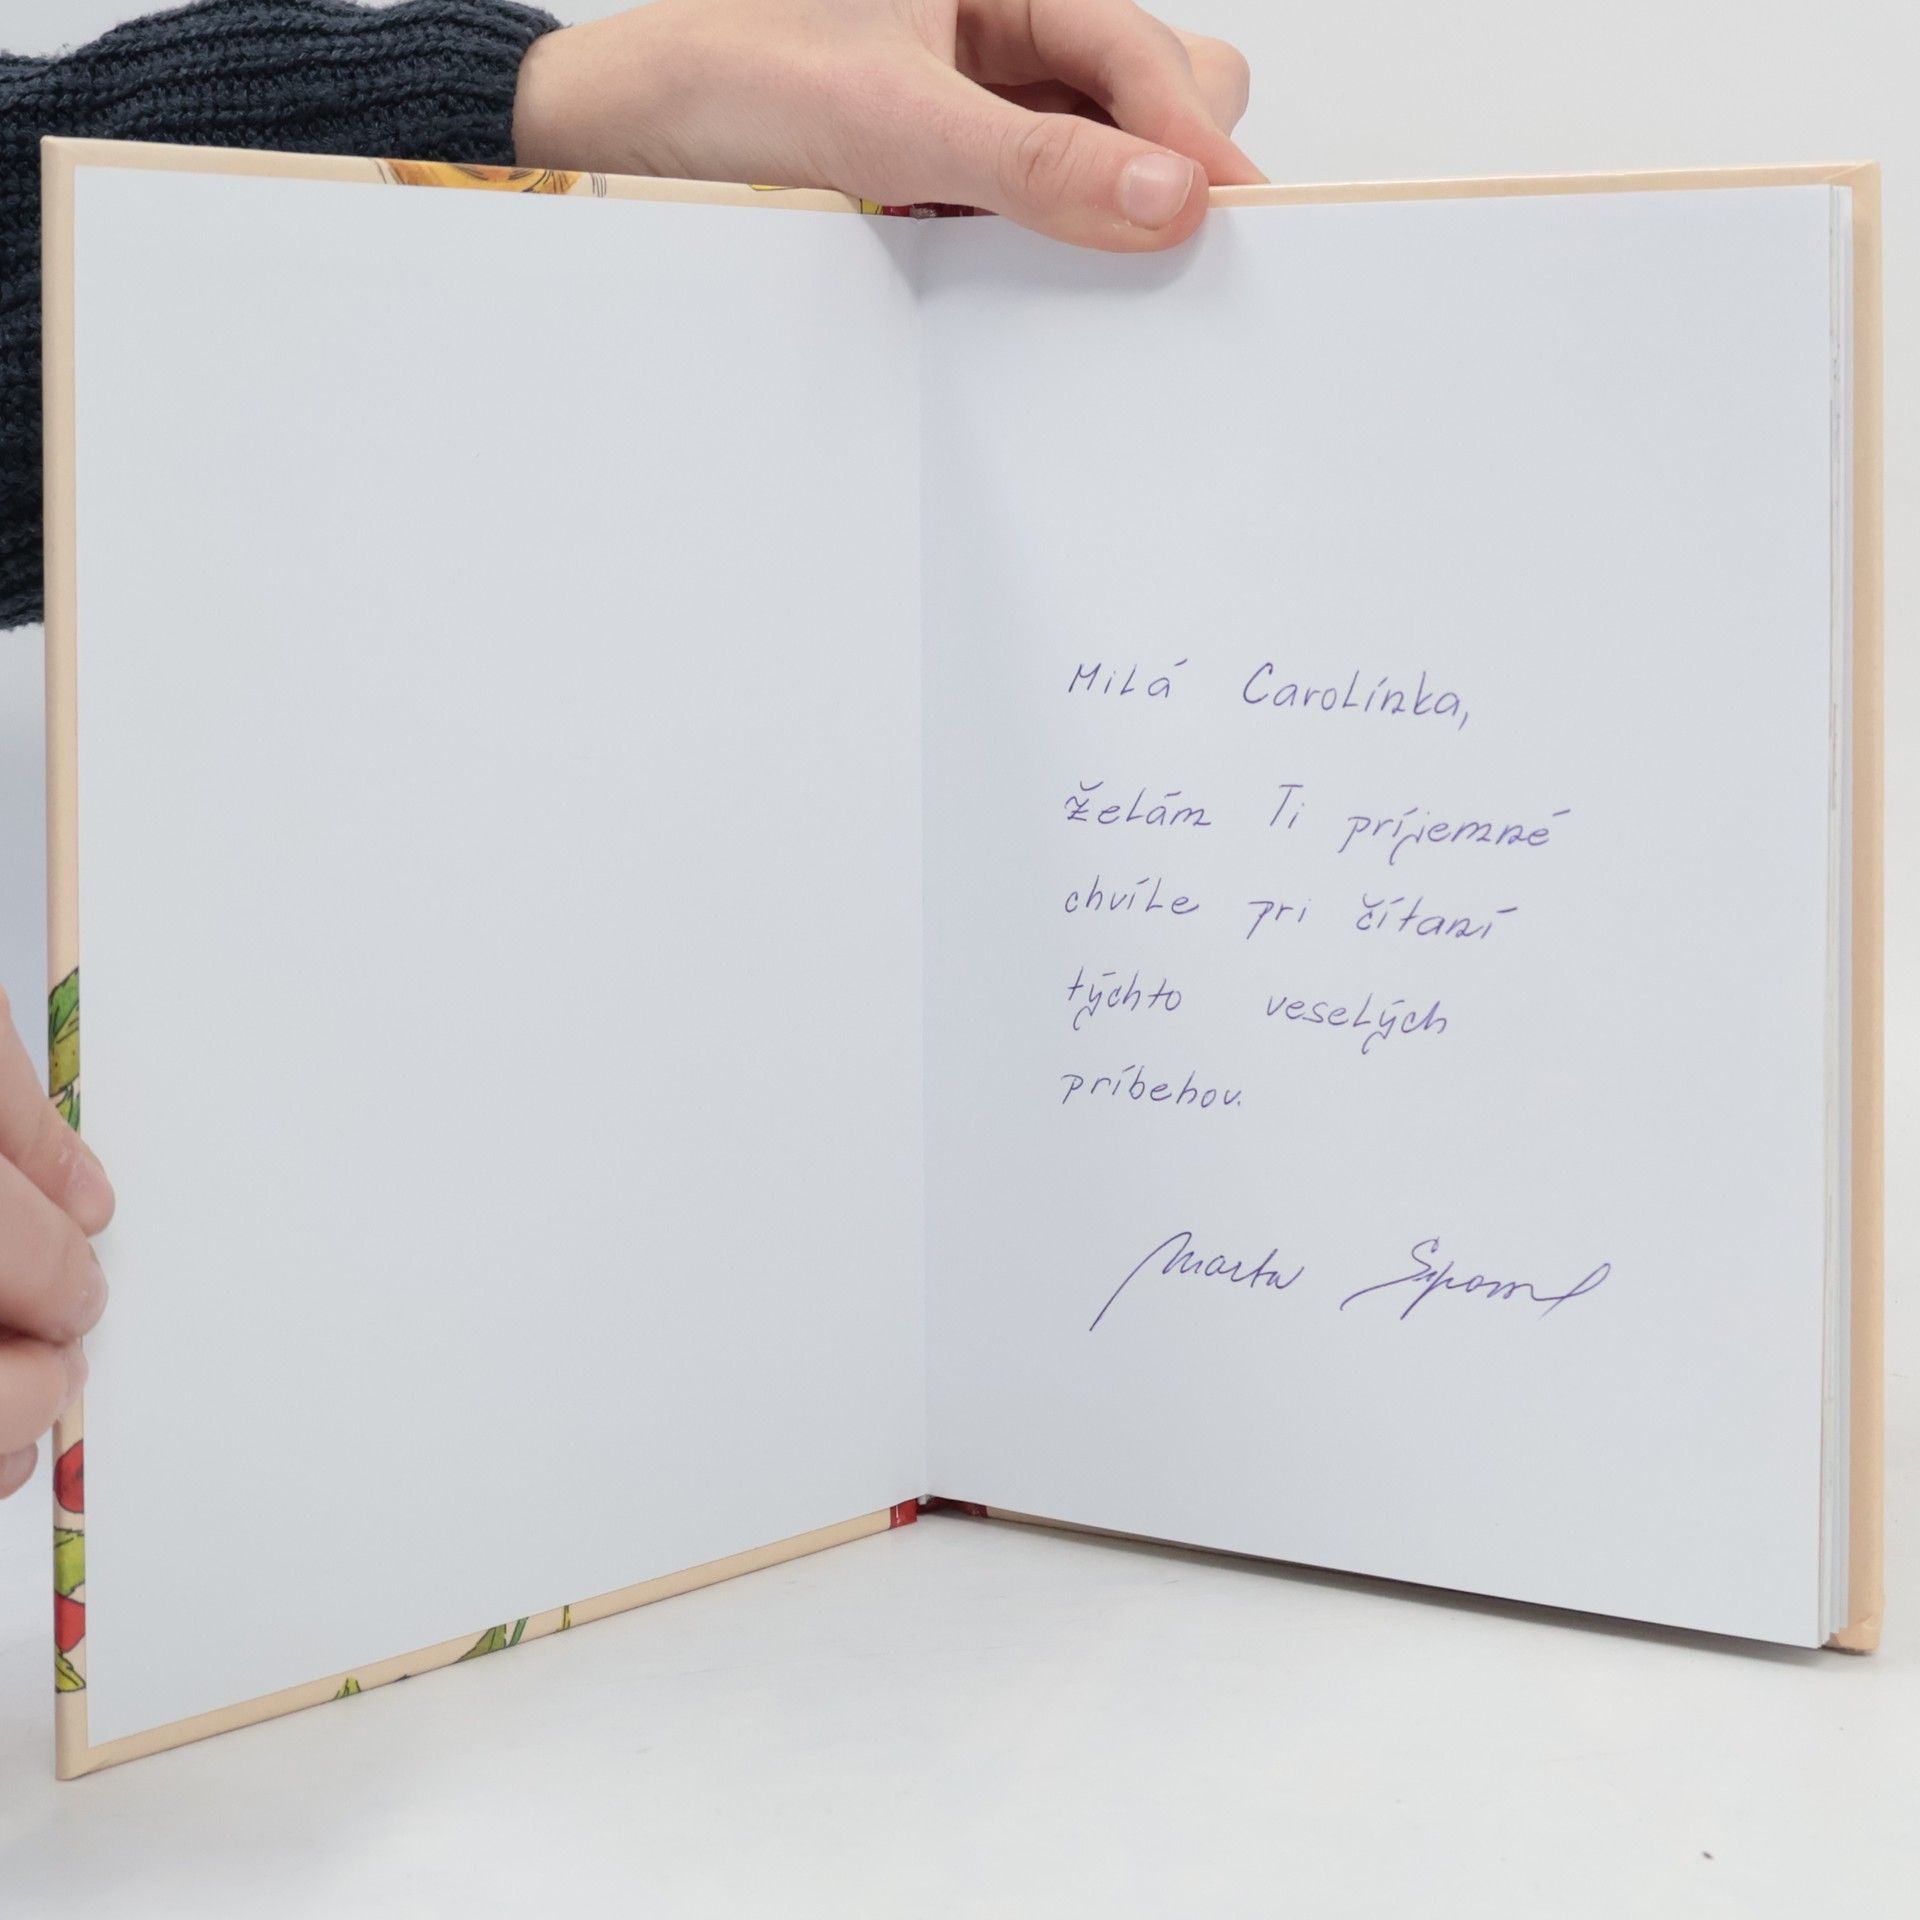 Milá Carolínka,
želám Ti príjemné
chvíle pri čítaní
týchto veselých
príbehov.
Marta